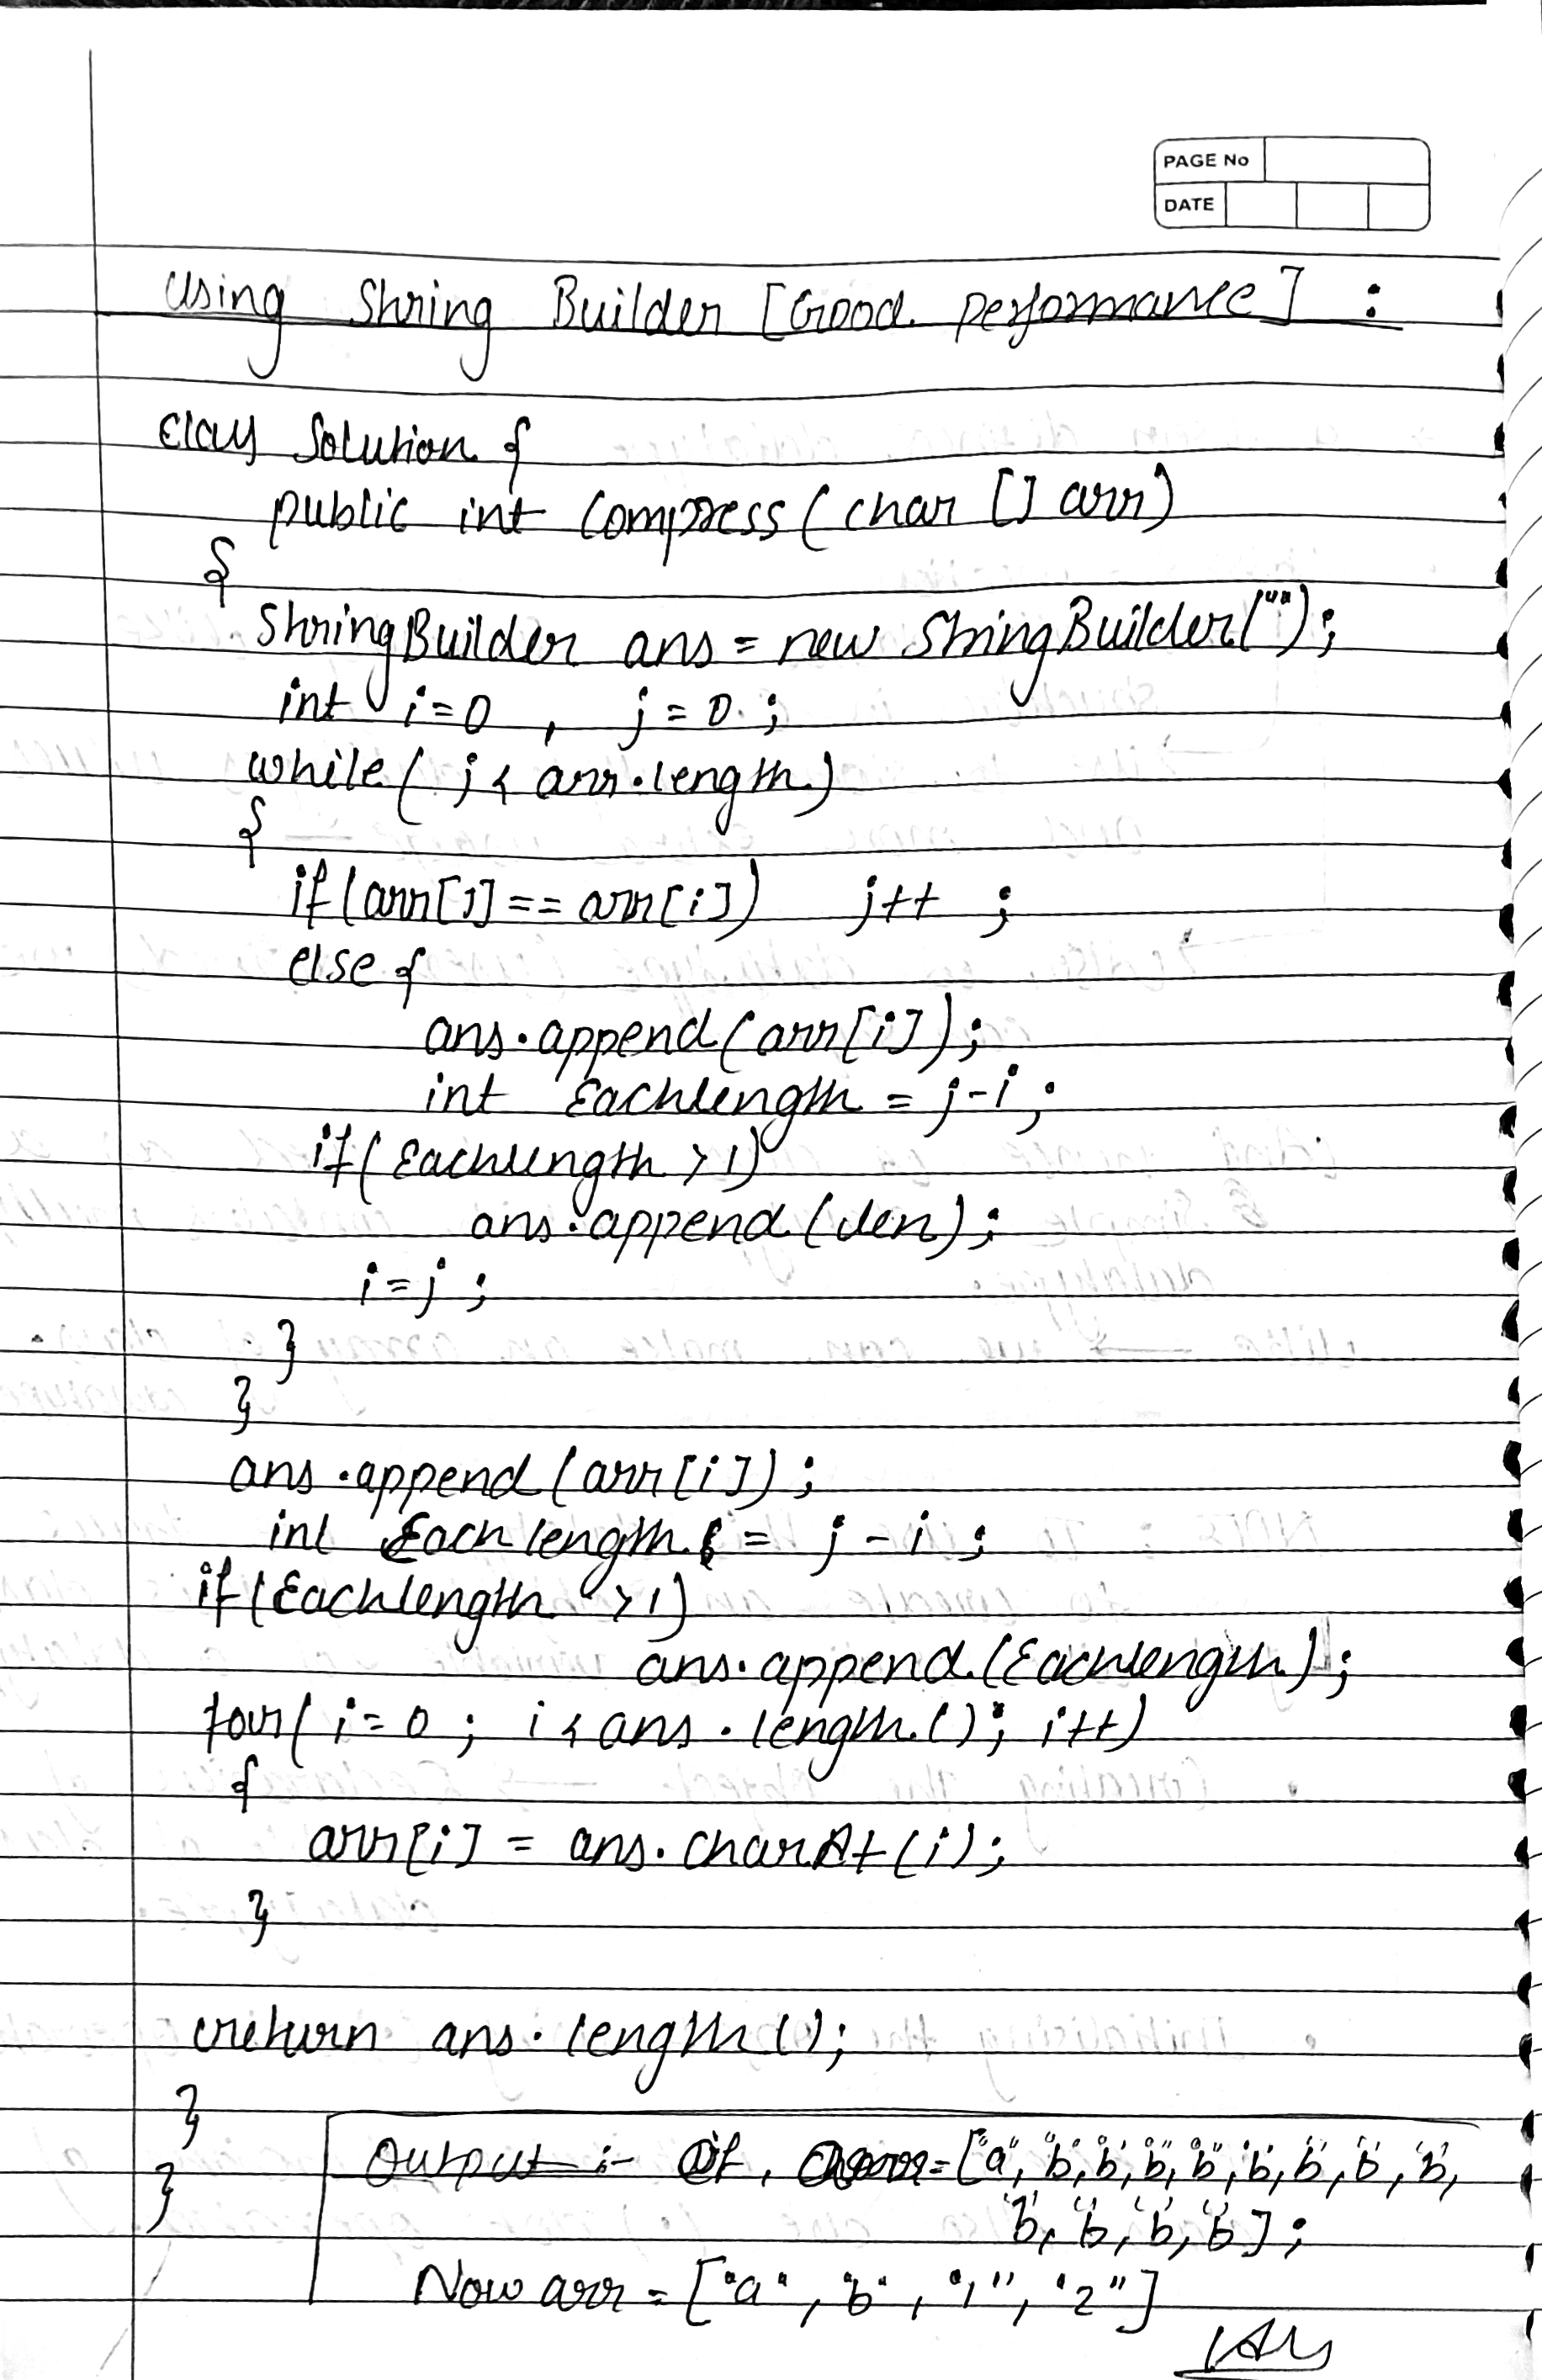 PAGE No
DATE
Using String Builder [Good performance] :
class Solution {
public int compress (char [] arr)
{
StringBuilder ans = new StringBuilder("");
int i=0 , j=0 ;
while( j < arr.length)
{
if(arr[j] == arr[i]) j++ ;
else {
ans.append(arr[i]);
int Eachlength = j-i;
if(Eachlength >1)
ans.append(len);
i=j ;
}
}
ans.append(arr[i]);
int Eachlength = j - i ;
if(Eachlength >1)
ans.append(Eachlength);
for( i=0 ; i < ans.length(); i++)
{
arr[i] = ans.charAt(i);
}
return ans.length();
}
}
Output :- if, arr=["a", "b", "b", "b", "b", "b", "b", "b", "b",
"b", "b", "b", "b"];
Now arr = ["a", "b", "1", "2"]
Ans